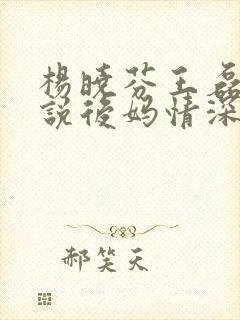 楊曉芬王磊
說後媽情深
郝笑天